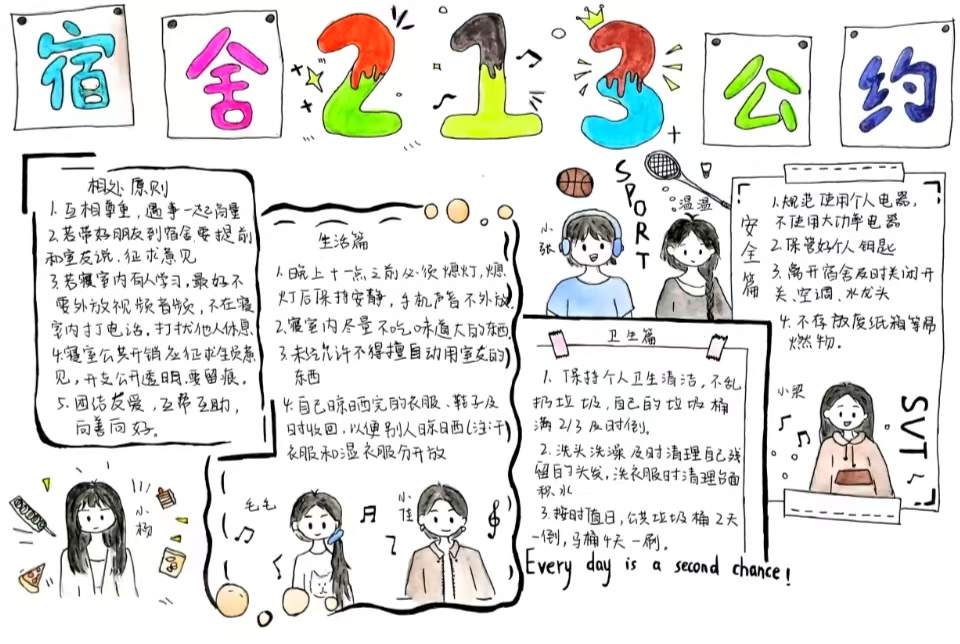 宿舍213公约
相处原则
1.互相尊重，遇事一起商量
2.若带好朋友到宿舍要提前
和室友说，征求意见
3.若寝室内有人学习，最好不
要外放视频音频，不在寝
室内打电话，打扰他人休息
4.寝室公共开销应征求全员意
见，开支公开透明，要留痕。
5.团结友爱，互帮互助，
向善向好。
小杨
生活篇
1.晚上十一点之前必须熄灯，熄
灯后保持安静，手机声音不外放
2.寝室内尽量不吃味道大的东西
3.未经允许不得擅自动用室友的
东西
4.自己晾晒完的衣服、鞋子及
时收回，以便别人晾晒(注:干
衣服和湿衣服分开放
毛毛
小佳
SPORT
小张
温温
卫生篇
1.保持个人卫生清洁，不乱
扔垃圾，自己的垃圾桶
满2/3及时倒。
2.洗头洗澡及时清理自己残
留的头发，洗衣服时清理台面
积水
3.按时值日，公共垃圾桶2天
一倒，马桶4天一刷。
Every day is a second chance!
安全篇
1.规范使用个人电器，
不使用大功率电器
2.保管好个人钥匙
3.离开宿舍及时关闭开
关、空调、水龙头
4.不存放废纸箱等易
燃物。
小梁
SVT